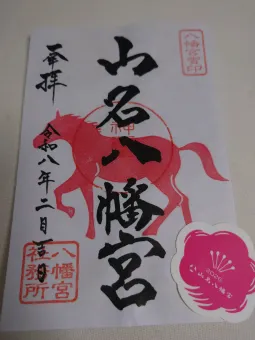 八幡宮寳印
奉拝
山名八幡宮
令和八年二月吉日
八幡宮
社務所
山名八幡宮